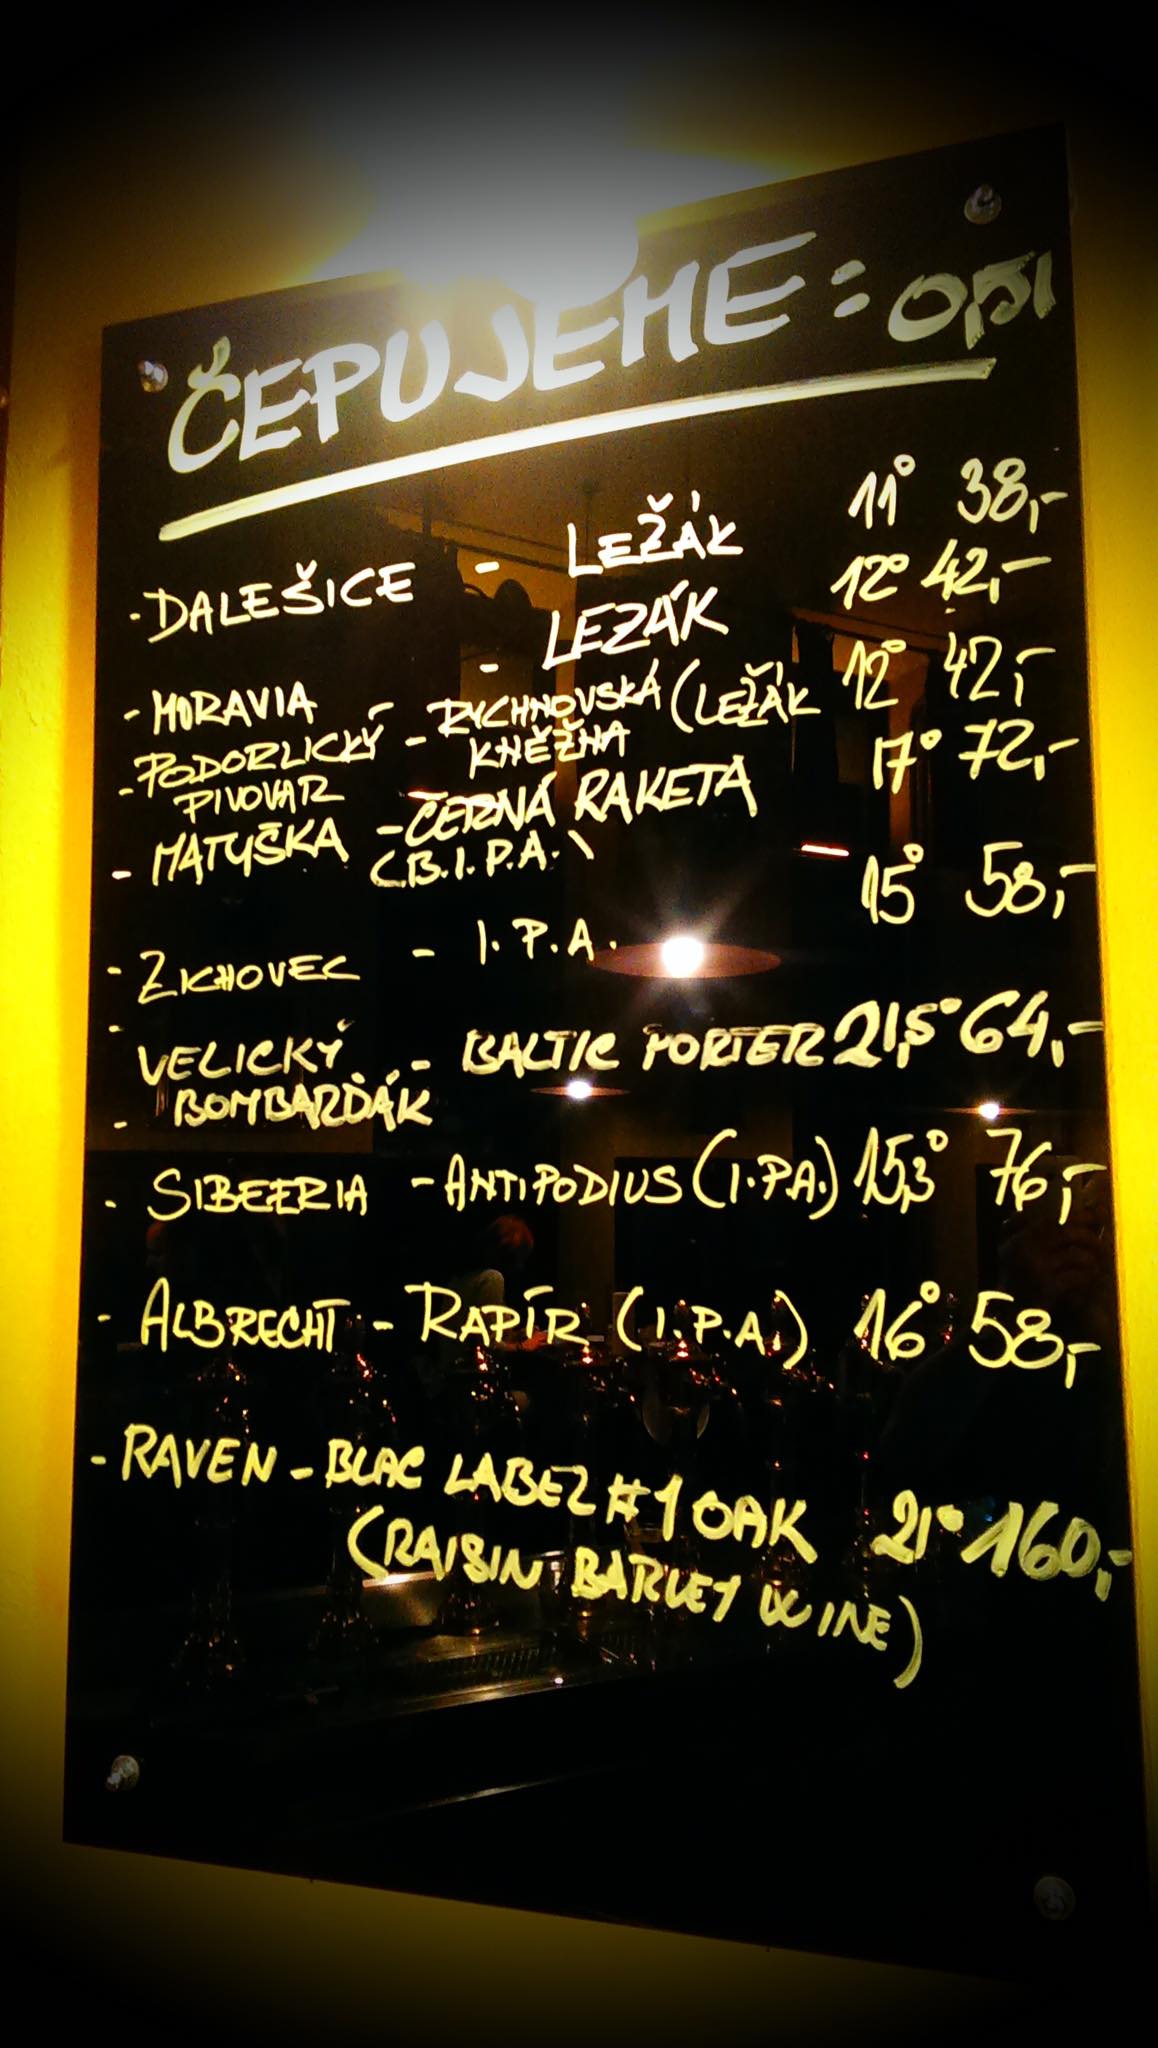 ČEPUJEME: 0,5l
- DALEŠICE - LEŽÁK 11° 38,-
- MORAVIA - LEZÁK 12° 42,-
- PODORLICKÝ - RYCHNOVSKÁ (LEŽÁK 12° 42,-
PIVOVAR KNĚŽNA
- MATUŠKA - ČERNÁ RAKETA 17° 72,-
(B.I.P.A.)
- ZICHOVEC - I.P.A. 15° 58,-
- VELICKÝ - BALTIC PORTER 21,5° 64,-
- BOMBARĎÁK
- SIBEERIA - ANTIPODIUS (I.P.A.) 15,3° 76,-
- ALBRECHT - RAPÍR (I.P.A.) 16° 58,-
- RAVEN - BLAC LABEL #1 OAK 21° 160,-
(RAISIN BARLEY WINE)